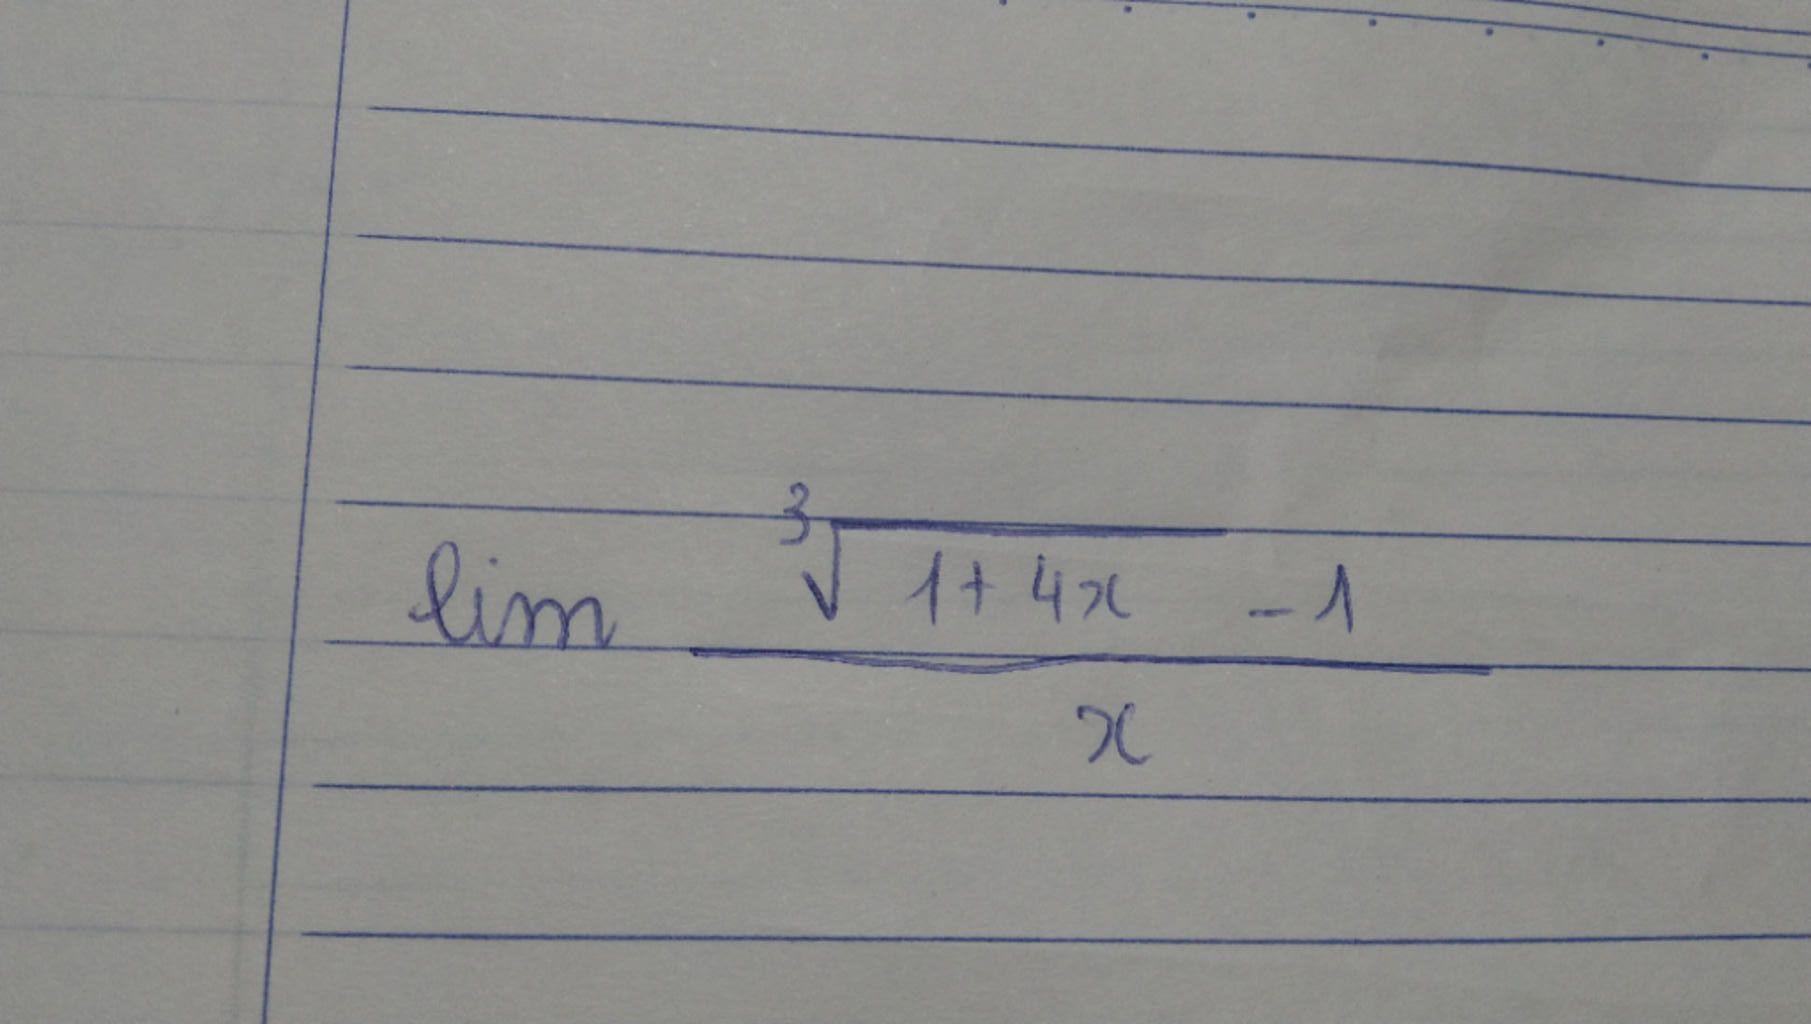 lim \frac{\sqrt[3]{1+4x} - 1}{x}